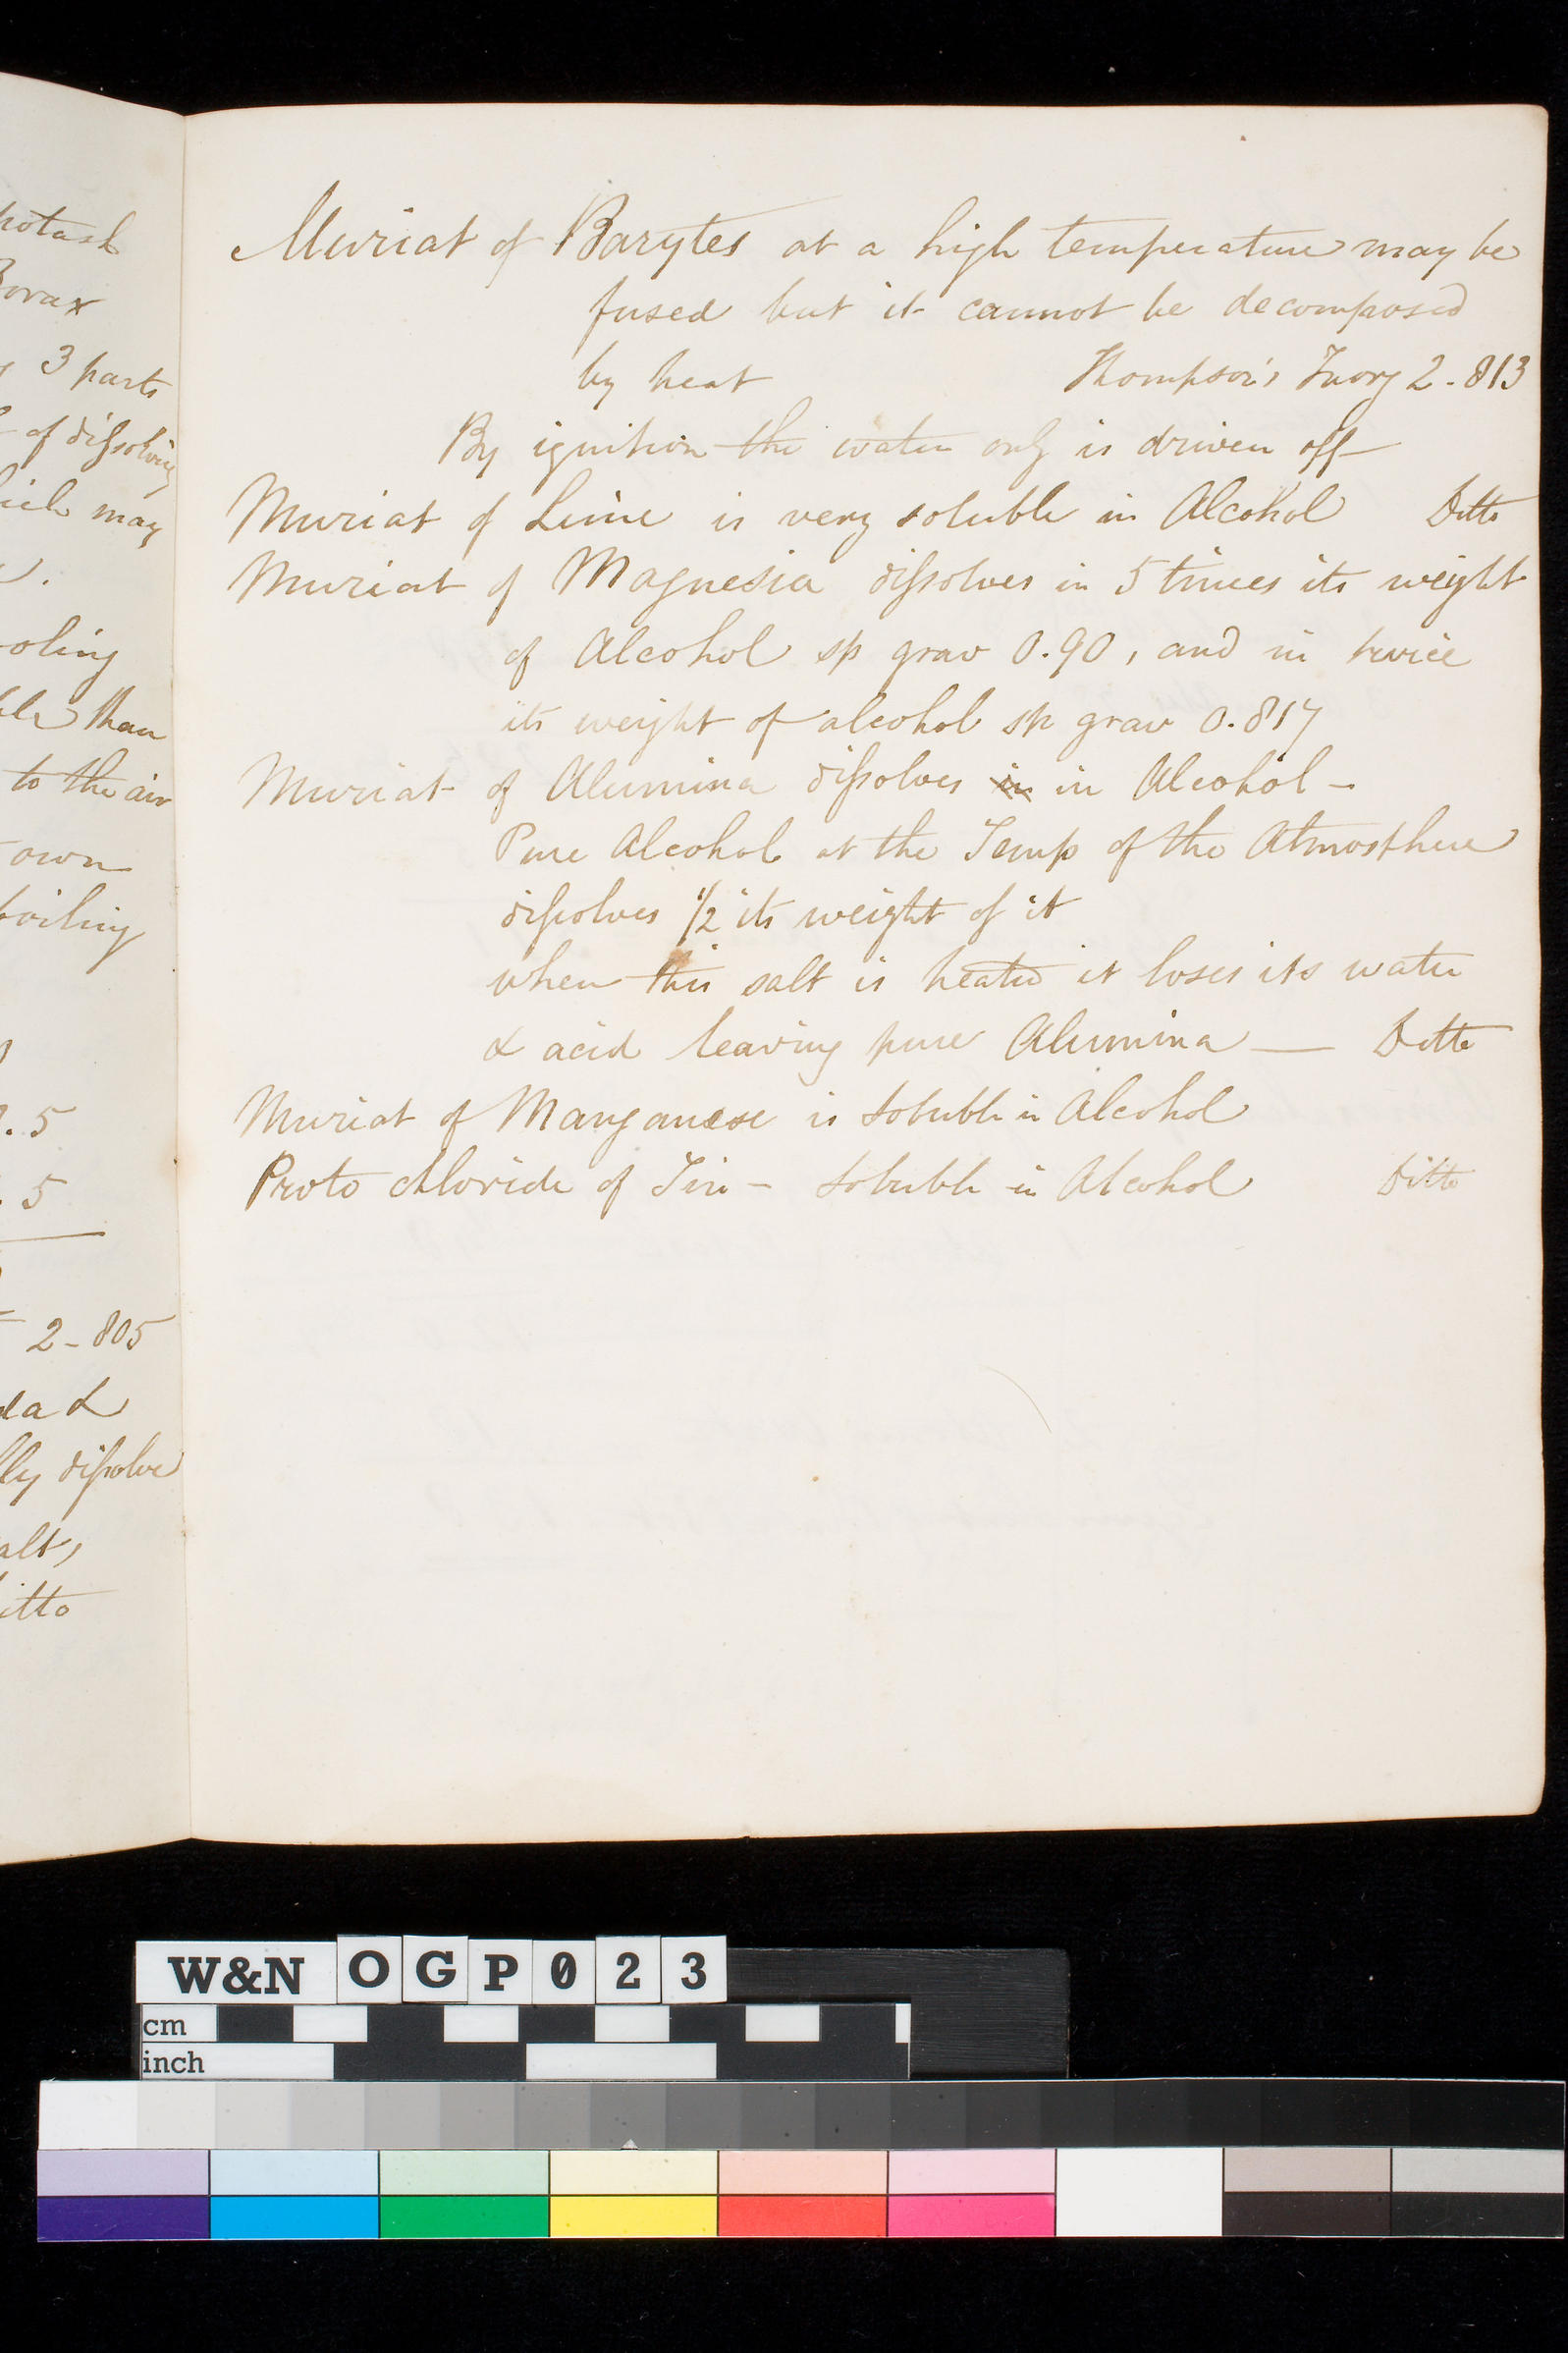 potash
Borax
3 parts
of dissolving
which may
oling
than
to the air
own
boiling
.5
.5
2-805
&
dissolve
alt,
itto
Muriat of Barytes at a high temperature may be
fused but it cannot be decomposed
by heat Thompson's Inorg 2.813
By ignition the water only is driven off
Muriat of Lime is very soluble in Alcohol Ditto
Muriat of Magnesia dissolves in 5 times its weight
of Alcohol sp grav 0.90, and in twice
its weight of alcohol sp grav 0.817
Muriat of Alumina dissolves in in Alcohol -
Pure Alcohol at the Temp of the Atmosphere
dissolves 1/2 its weight of it
when this salt is heated it loses its water
& acid leaving pure Alumina — Ditto
Muriat of Manganese is soluble in Alcohol
Proto chloride of Tin - soluble in Alcohol Ditto
W&N OGP023
cm
inch